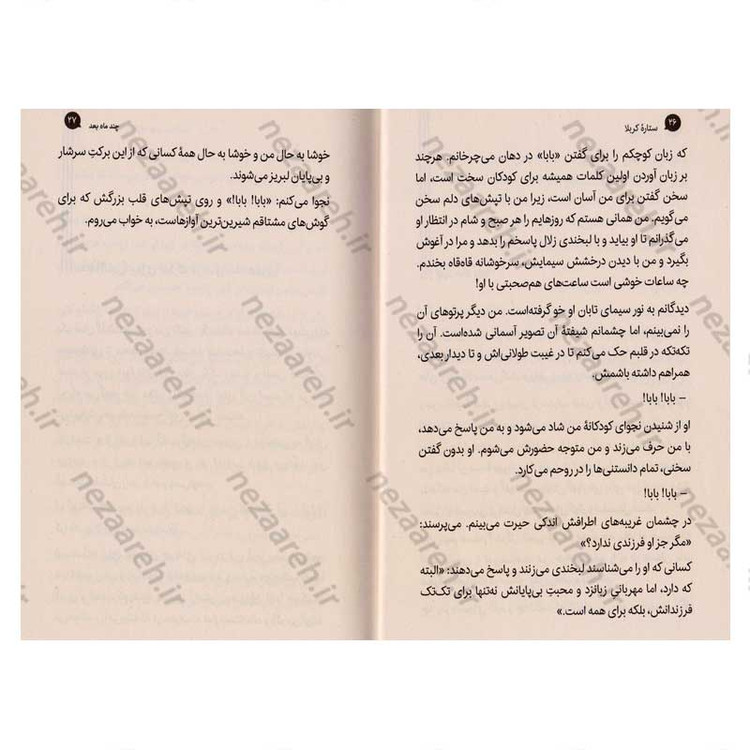 ۲۶ ستارهٔ کربلا
که زبان کوچکم را برای گفتن «بابا» در دهان می‌چرخانم. هرچند
بر زبان آوردن اولین کلمات همیشه برای کودکان سخت است، اما
سخن گفتن برای من آسان است، زیرا من با تپش‌های دلم سخن
می‌گویم. من همانی هستم که روزهایم را هر صبح و شام در انتظار او
می‌گذرانم تا او بیاید و با لبخندی زلال پاسخم را بدهد و مرا در آغوش
بگیرد و من با دیدن درخشش سیمایش، سرخوشانه قاه‌قاه بخندم.
چه ساعات خوشی است ساعت‌های هم‌صحبتی با او!
دیدگانم به نور سیمای تابان او خو گرفته‌است. من دیگر پرتوهای آن
را نمی‌بینم، اما چشمانم شیفتهٔ آن تصویر آسمانی شده‌است. آن را
تکه‌تکه در قلبم حک می‌کنم تا در غیبت طولانی‌اش و تا دیدار بعدی،
همراهم داشته باشمش.
– بابا! بابا!
او از شنیدن نجوای کودکانهٔ من شاد می‌شود و به من پاسخ می‌دهد،
با من حرف می‌زند و من متوجه حضورش می‌شوم. او بدون گفتن
سخنی، تمام دانستنی‌ها را در روحم می‌کارد.
– بابا! بابا!
در چشمان غریبه‌های اطرافش اندکی حیرت می‌بینم. می‌پرسند:
«مگر جز او فرزندی ندارد؟»
کسانی که او را می‌شناسند لبخندی می‌زنند و پاسخ می‌دهند: «البته
که دارد، اما مهربانیِ زبانزد و محبتِ بی‌پایانش نه‌تنها برای تک‌تک
فرزندانش، بلکه برای همه است.»
چند ماه بعد ۲۷
خوشا به حال من و خوشا به حال همهٔ کسانی که از این برکتِ سرشار
و بی‌پایان لبریز می‌شوند.
نجوا می‌کنم: «بابا! بابا!» و روی تپش‌های قلب بزرگش که برای
گوش‌های مشتاقم شیرین‌ترین آوازهاست، به خواب می‌روم.
nezaareh.ir